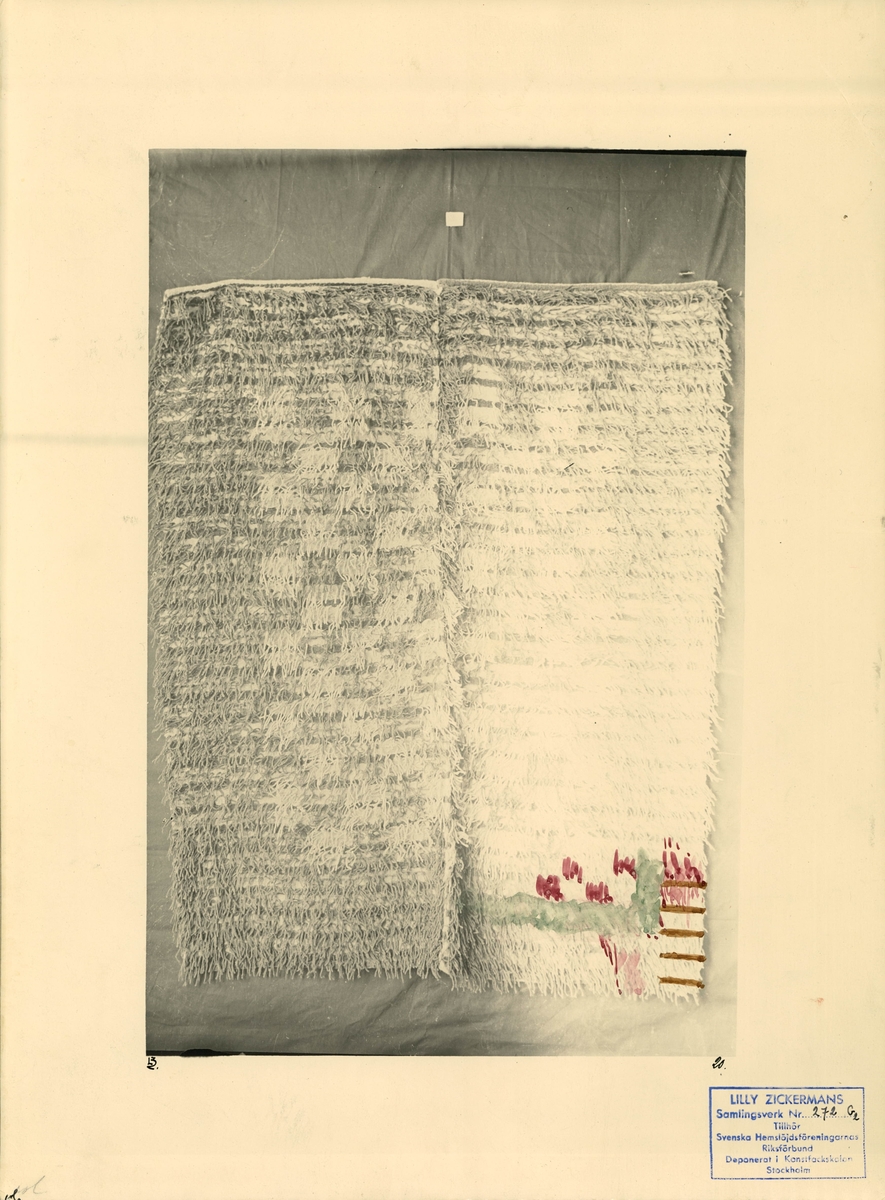 13.
20.
LILLY ZICKERMANS
Samlingsverk Nr...272 G2
Tillhör
Svenska Hemslöjdsföreningarnas
Riksförbund
Deponerat i Konstfackskolan
Stockholm